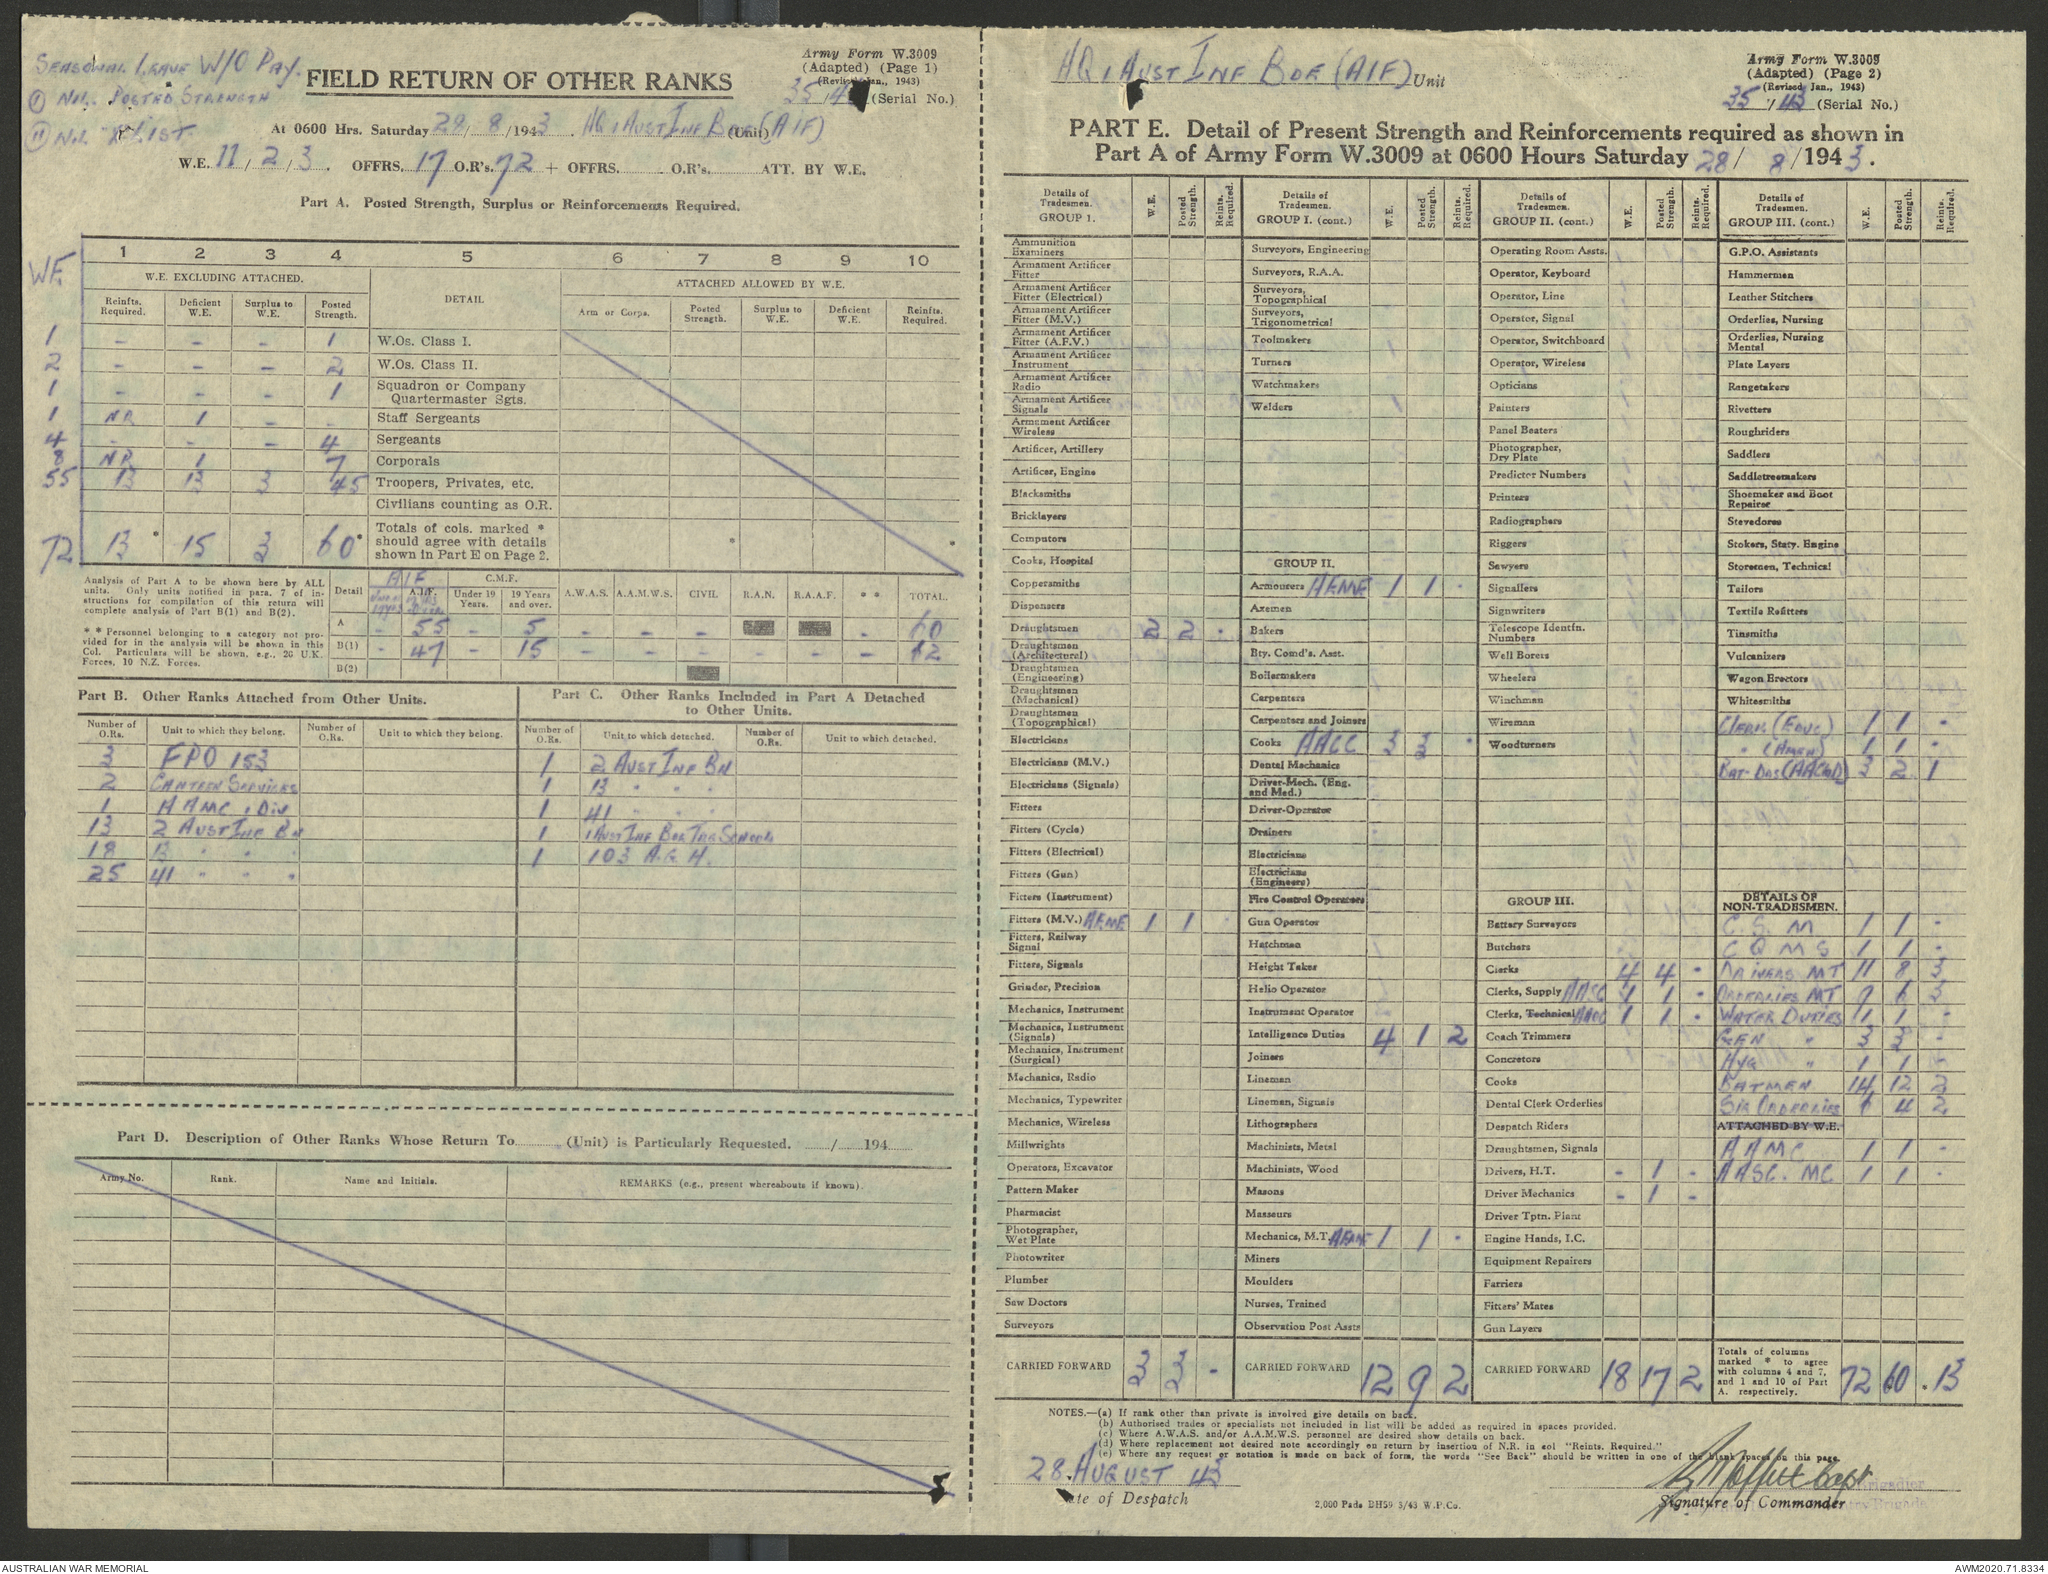 SEASONAL LEAVE W/O PAY.
(I) NIL. POSTED STRENGTH
(II) NIL "X" LIST.
Army Form W.3009
(Adapted) (Page 1)
(Revised Jan., 1943)
FIELD RETURN OF OTHER RANKS
35/43 (Serial No.)
At 0600 Hrs. Saturday 28/8/1943. HQ 1 AUST INF BDE (AIF) (Unit)
W.E. 11/2/3. OFFRS. 17 O.R's. 72 + OFFRS. O.R's. ATT. BY W.E.
Part A. Posted Strength, Surplus or Reinforcements Required.
1 2 3 4 5 6 7 8 9 10
WE
W.E. EXCLUDING ATTACHED. DETAIL ATTACHED ALLOWED BY W.E.
Reinfts. Required. Deficient W.E. Surplus to W.E. Posted Strength. Arm or Corps. Posted Strength. Surplus to W.E. Deficient W.E. Reinfts. Required.
1 - - - 1 W.Os. Class I.
2 - - - 2 W.Os. Class II.
1 - - - 1 Squadron or Company Quartermaster Sgts.
1 NR 1 - - Staff Sergeants
4 - - - 4 Sergeants
8 NR 1 - 7 Corporals
55 13 13 3 45 Troopers, Privates, etc.
Civilians counting as O.R.
72 13 * 15 3 60 * Totals of cols. marked * should agree with details shown in Part E on Page 2. * *
Analysis of Part A to be shown here by ALL units. Only units notified in para. 7 of instructions for compilation of this return will complete analysis of Part B(1) and B(2).
* * Personnel belonging to a category not provided for in the analysis will be shown in this Col. Particulars will be shown, e.g., 20 U.K. Forces, 10 N.Z. Forces.
Detail AIF A.I.F. C.M.F. Under 19 Years. 19 Years and over. A.W.A.S. A.A.M.W.S. CIVIL R.A.N. R.A.A.F. * * TOTAL.
A - 55 - 5 - - - - 60
B(1) - 47 - 15 - - - - - - 62
B(2)
Part B. Other Ranks Attached from Other Units.
Number of O.Rs. Unit to which they belong. Number of O.Rs. Unit to which they belong.
3 FPO 153
2 CANTEEN SERVICES
1 AAMC 1 DIV
13 2 AUST INF BN
18 13 " " "
25 41 " " "
Part C. Other Ranks Included in Part A Detached to Other Units.
Number of O.Rs. Unit to which detached. Number of O.Rs. Unit to which detached.
1 2 AUST INF BN
1 13 " " "
1 41 " " "
1 1 AUST INF BDE TRG SCHOOL
1 103 A.G.H.
Part D. Description of Other Ranks Whose Return To (Unit) is Particularly Requested. / 194
Army No. Rank. Name and Initials. REMARKS (e.g., present whereabouts if known).
HQ 1 AUST INF BDE (AIF) Unit
Army Form W.3009
(Adapted) (Page 2)
(Revised Jan., 1943)
35/43 (Serial No.)
PART E. Detail of Present Strength and Reinforcements required as shown in
Part A of Army Form W.3009 at 0600 Hours Saturday 28/8/1943.
Details of Tradesmen. GROUP I. W.E. Posted Strength. Reints. Required.
Ammunition Examiners
Armament Artificer Fitter
Armament Artificer Fitter (Electrical)
Armament Artificer Fitter (M.V.)
Armament Artificer Fitter (A.F.V.)
Armament Artificer Instrument
Armament Artificer Radio
Armament Artificer Signals
Armament Artificer Wireless
Artificer, Artillery
Artificer, Engine
Blacksmiths
Bricklayers
Computors
Cooks, Hospital
Coppersmiths
Dispensers
Draughtsmen 2 2 -
Draughtsmen (Architectural)
Draughtsmen (Engineering)
Draughtsmen (Mechanical)
Draughtsmen (Topographical)
Electricians
Electricians (M.V.)
Electricians (Signals)
Fitters
Fitters (Cycle)
Fitters (Electrical)
Fitters (Gun)
Fitters (Instrument)
Fitters (M.V.) AEME 1 1 -
Fitters, Railway Signal
Fitters, Signals
Grinder, Precision
Mechanics, Instrument
Mechanics, Instrument (Signals)
Mechanics, Instrument (Surgical)
Mechanics, Radio
Mechanics, Typewriter
Mechanics, Wireless
Millwrights
Operators, Excavator
Pattern Maker
Pharmacist
Photographer, Wet Plate
Photowriter
Plumber
Saw Doctors
Surveyors
CARRIED FORWARD 3 3 -
Details of Tradesmen. GROUP I. (cont.) W.E. Posted Strength. Reints. Required.
Surveyors, Engineering
Surveyors, R.A.A.
Surveyors, Topographical
Surveyors, Trigonometrical
Toolmakers
Turners
Watchmakers
Welders
GROUP II.
Armourers AEME 1 1 -
Axemen
Bakers
Bty. Comd's. Asst.
Boilermakers
Carpenters
Carpenters and Joiners
Cooks AACC 3 3 -
Dental Mechanics
Driver-Mech. (Eng. and Med.)
Driver-Operator
Drainers
Electricians
Electricians (Engineers)
Fire Control Operators
Gun Operator
Hatchman
Height Taker
Helio Operator
Instrument Operator
Intelligence Duties 4 1 2
Joiners
Lineman
Lineman, Signals
Lithographers
Machinists, Metal
Machinists, Wood
Masons
Masseurs
Mechanics, M.T. AEME 1 1 -
Miners
Moulders
Nurses, Trained
Observation Post Assts
CARRIED FORWARD 12 9 2
Details of Tradesmen. GROUP II. (cont.) W.E. Posted Strength. Reints. Required.
Operating Room Assts.
Operator, Keyboard
Operator, Line
Operator, Signal
Operator, Switchboard
Operator, Wireless
Opticians
Painters
Panel Beaters
Photographer, Dry Plate
Predictor Numbers
Printers
Radiographers
Riggers
Sawyers
Signallers
Signwriters
Telescope Identfn. Numbers
Well Borers
Wheelers
Winchman
Wireman
Woodturners
GROUP III.
Battery Surveyors
Butchers
Clerks 4 4 -
Clerks, Supply AASC 1 1 -
Clerks, Technical AAOC 1 1 -
Coach Trimmers
Concretors
Cooks
Dental Clerk Orderlies
Despatch Riders
Draughtsmen, Signals
Drivers, H.T. - 1 -
Driver Mechanics - 1 -
Driver Tptn. Plant
Engine Hands, I.C.
Equipment Repairers
Farriers
Fitters' Mates
Gun Layers
CARRIED FORWARD 18 17 2
Details of Tradesmen. GROUP III. (cont.) W.E. Posted Strength. Reints. Required.
G.P.O. Assistants
Hammermen
Leather Stitchers
Orderlies, Nursing
Orderlies, Nursing Mental
Plate Layers
Rangetakers
Rivetters
Roughriders
Saddlers
Saddletreemakers
Shoemaker and Boot Repairer
Stevedores
Stokers, Staty. Engine
Storemen, Technical
Tailors
Textile Refitters
Tinsmiths
Vulcanizers
Wagon Erectors
Whitesmiths
CLERK (EDUC) 1 1 -
" (AMEN) 1 1 -
3 2 1
DETAILS OF NON-TRADESMEN.
C. S. M 1 1 -
C Q M S 1 1 -
DRIVERS MT 11 8 3
ORDERLIES MT 9 6 3
WATER DUTIES 1 1 -
GEN " 3 3 -
HYG " 1 1 -
BATMEN 14 12 2
SIG ORDERLIES 6 4 2
ATTACHED BY W.E.
AAMC 1 1 -
AASC. MC 1 1 -
Totals of columns marked * to agree with columns 4 and 7, and 1 and 10 of Part A. respectively. 72 60 13
NOTES.—(a) If rank other than private is involved give details on back.
(b) Authorised trades or specialists not included in list will be added as required in spaces provided.
(c) Where A.W.A.S. and/or A.A.M.W.S. personnel are desired show details on back.
(d) Where replacement not desired note accordingly on return by insertion of N.R. in col "Reints. Required."
(e) Where any request or notation is made on back of form, the words "See Back" should be written in one of the blank spaces on this page.
28 AUGUST 43
Date of Despatch
2,000 Pads BH59 3/43 W.P.Co.
Capt
Brigadier
Signature of Commander
AUSTRALIAN WAR MEMORIAL
AWM2020.71.8334